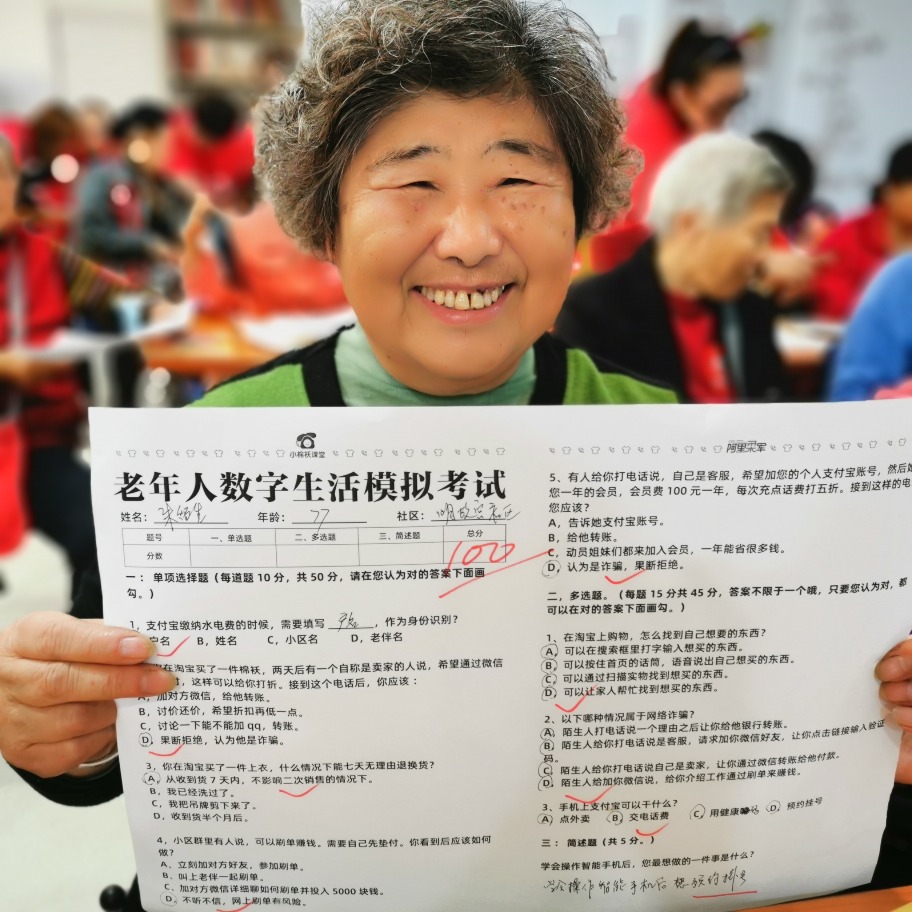 小棉袄课堂
老年人数字生活模拟考试
姓名： 年龄：77 社区：
题号 一、单选题 二、多选题 三、简述题 总分
分数 100
一：单项选择题（每道题10分，共50分，请在您认为对的答案下面画
勾。）
1，支付宝缴纳水电费的时候，需要填写 ，作为身份识别？
户名 B，姓名 C，小区名 D，老伴名
在淘宝买了一件棉袄，两天后有一个自称是卖家的人说，希望通过微信
，这样可以给你打折。接到这个电话后，你应该：
A，加对方微信，给他转账。
B，讨价还价，希望折扣再低一点。
C，讨论一下能不能加qq，转账。
D，果断拒绝，认为他是诈骗。
3，你在淘宝买了一件上衣，什么情况下能七天无理由退换货？
A，从收到货7天内，不影响二次销售的情况下。
B，我已经洗过了。
C，我把吊牌剪下来了。
D，收到货半个月后。
4，小区群里有人说，可以刷单赚钱。需要自己先垫付。你看到后应该如何
做？
A，立刻加对方好友，参加刷单。
B，叫上老伴一起刷单。
C，加对方微信详细聊如何刷单并投入5000块钱。
D，不听不信，网上刷单有风险。
5，有人给你打电话说，自己是客服，希望加您的个人支付宝账号，然后
您一年的会员，会员费100元一年，每次充点话费打五折。接到这样的电
您应该？
A，告诉她支付宝账号。
B，给他转账。
C，动员姐妹们都来加入会员，一年能省很多钱。
D，认为是诈骗，果断拒绝。
二，多选题。（每题15分共45分，答案不限于一个哦，只要您认为对，都
可以在对的答案下面画勾。）
1、在淘宝上购物，怎么找到自己想要的东西？
A，可以在搜索框里打字输入想买的东西。
B，可以按住首页的话筒，语音说出自己想买的东西。
C，可以通过扫描实物找到想买的东西。
D，可以让家人帮忙找到想买的东西。
2、以下哪种情况属于网络诈骗？
A，陌生人打电话说一个理由之后让你给他银行转账。
B，陌生人给你打电话说是客服，请求加你微信好友，让你点击链接输入验证
码。
C，陌生人给你打电话说自己是卖家，让你通过微信转账给他付款。
D，陌生人给你加你微信说，给你介绍工作通过刷单来赚钱。
3、手机上支付宝可以干什么？
A，点外卖 B，交电话费 C，用健康 D，预约挂号
三：简述题（共5分。）
学会操作智能手机后，您最想做的一件事是什么？
学会操作智能手机后想预约挂号